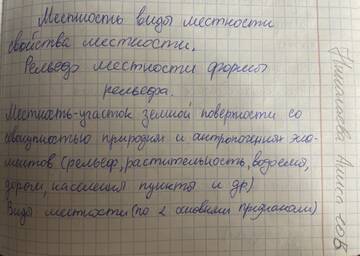 Местность виды местности
свойства местности.
Рельеф местности формы
рельефа.
Местность-участок земной поверхности со
совокупностью природных и антропогенных эле-
ментов (рельеф, растительность, водоемы,
дороги, населенные пункты и др)
Виды местности (по 2 основным признакам)
Никольская Анна 10В